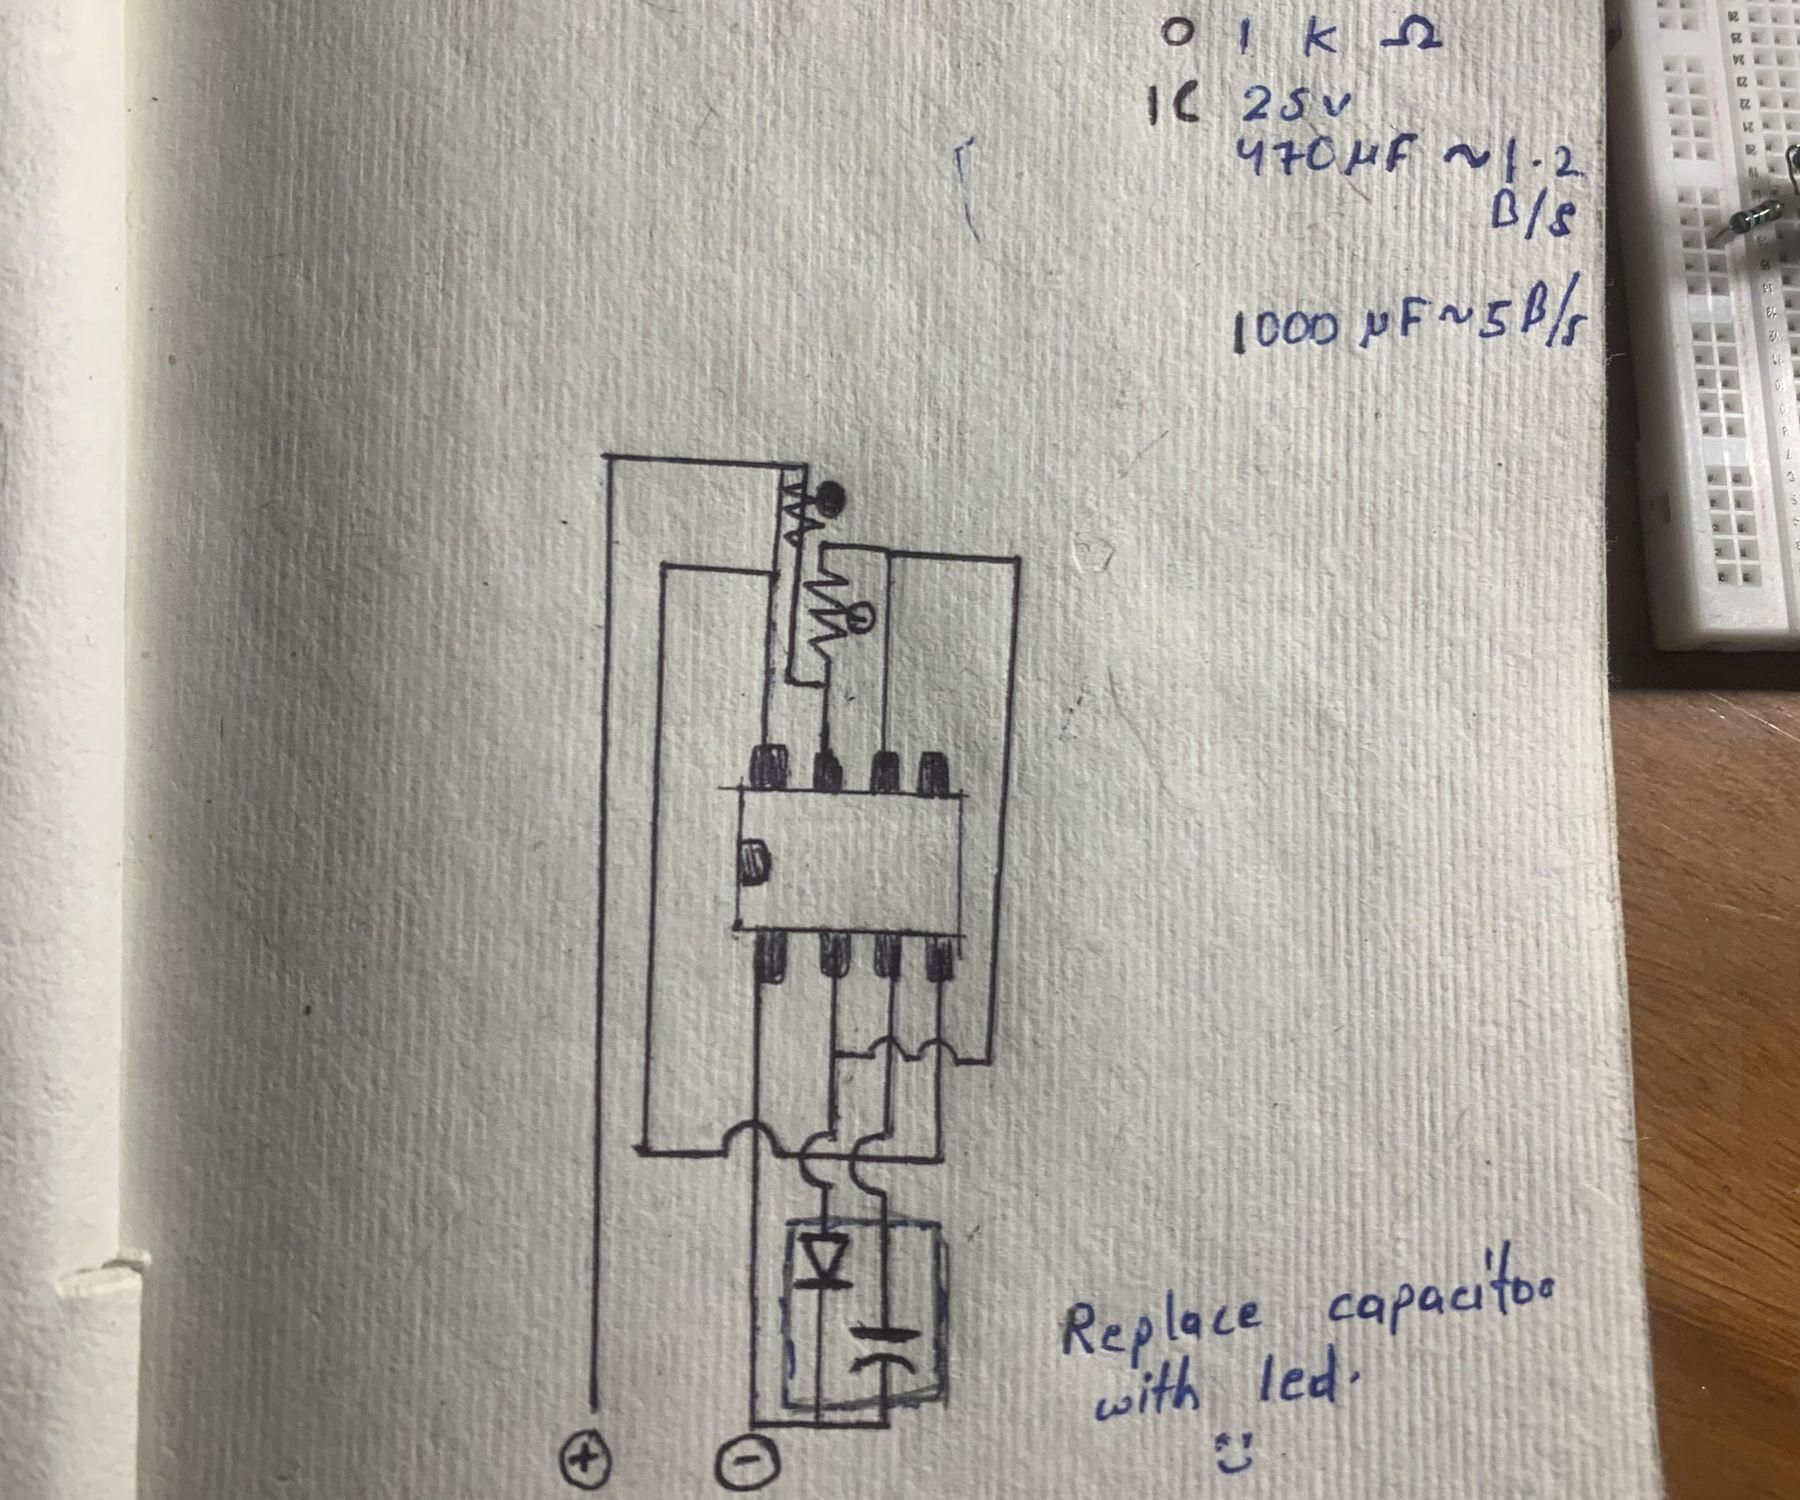 O 1 k Ω
1C 25v
470 µF ~ 1.2
B/s
1000 µF ~ 5 B/s
+ −
Replace capacitor
with led.